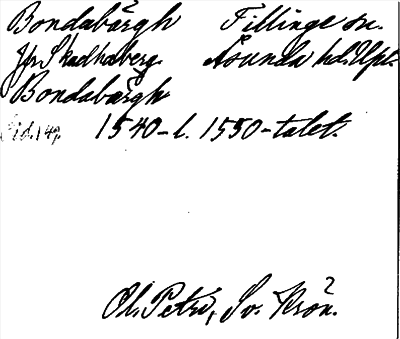 Bondabärgh Fillinge sn.
Jfr Skadhaberg. Åsunda hd. Upl.
Bondabärgh
(sid. 149) 1540- l. 1550-talet.
Ol. Petri, Sv. Krön.